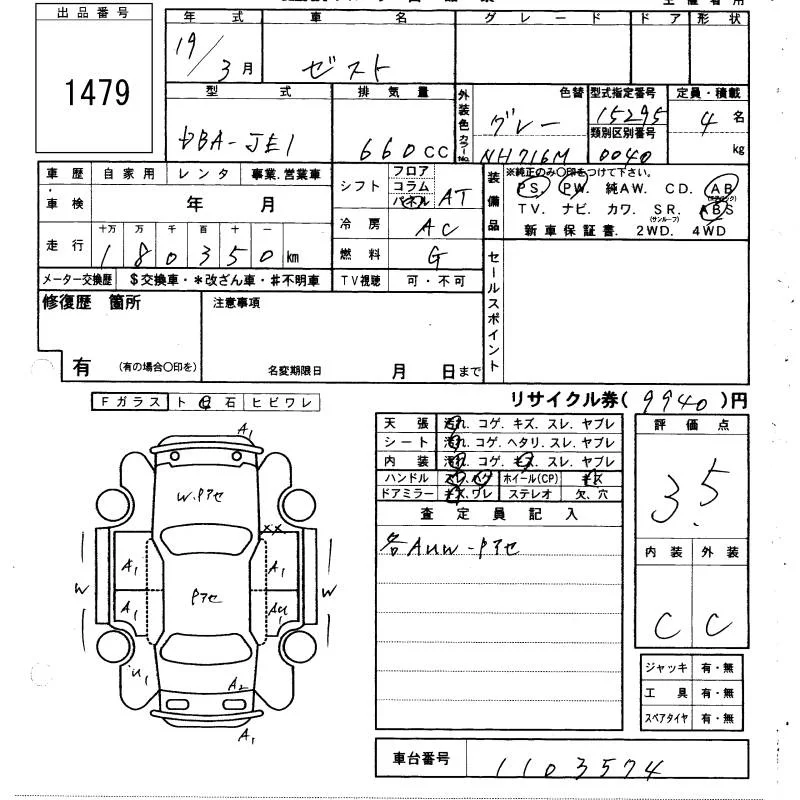 出品番号
1479
年式 車名 グレード ドア 形状
19/3月 ゼスト
型式 排気量 外装色 色替 型式指定番号 定員・積載
DBA-JE1 660cc グレー カラーNo. NH716M 15295 4名
類別区別番号
0040 kg
車歴 自家用 レンタ 事業.営業車 シフト フロア コラム パネル AT 装備品 ※純正のみ○印をつけて下さい。
車検 年 月 PS. PW. 純AW. CD. AB
冷房 AC TV. ナビ. カワ. SR. ABS
(サンルーフ)
走行 十万 万 千 百 十 一 燃料 G 新車保証書. 2WD. 4WD
180350km
メーター交換歴 $交換車・*改ざん車・#不明車 TV視聴 可・不可 セールスポイント
修復歴 箇所 注意事項
有 (有の場合○印を) 名変期限日 月 日まで
Fガラス ト 石 ヒビワレ リサイクル券(9940)円
天張 汚れ. コゲ. キズ. スレ. ヤブレ 評価点
シート 汚れ. コゲ. ヘタリ. スレ. ヤブレ
内装 汚れ. コゲ. キズ. スレ. ヤブレ
ハンドル スレ. ホイール(CP) 3.5
ドアミラー キズ. ワレ ステレオ 欠. 穴
査定員記入
各AUW-Pアセ
内装 外装
C C
ジャッキ 有・無
工具 有・無
スペアタイヤ 有・無
車台番号 1103574
A1
W.Pアセ
XX
A1 A1
W Pアセ W
A1 AU
U1
A2
A1